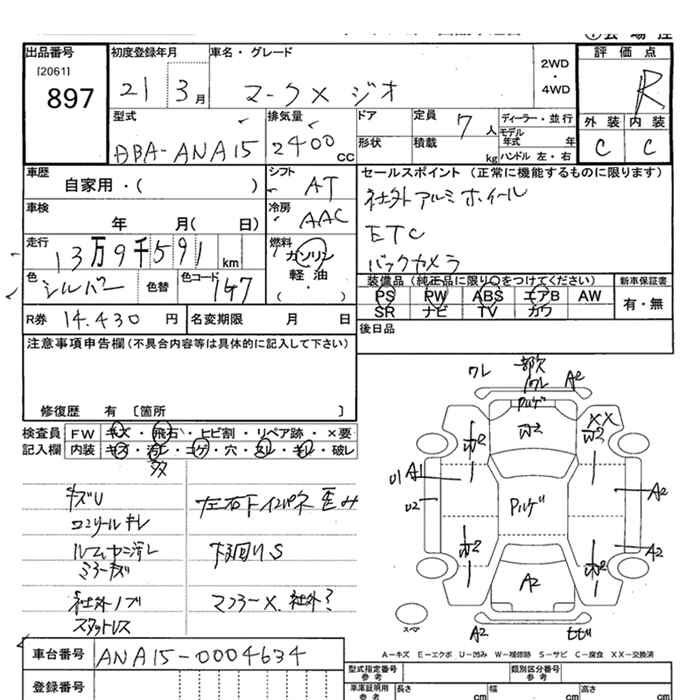 出品番号 初度登録年月 車名・グレード 評価点
[2061]
897 21 3月 マークX ジオ 2WD・4WD R
型式 排気量 ドア 定員 7人 ディーラー・並行
DBA-ANA15 2400CC 形状 積載 kg モデル年式 年 ハンドル 左・右
外装 内装
C C
車歴 シフト セールスポイント (正常に機能するものに限ります)
自家用・( ) AT 社外アルミホイール
車検 冷房 ETC
年 月( 日) AAC バックカメラ
走行 13万9千591km 燃料 ガソリン
軽油
( ・ )
色 シルバー 色替 色コード 1F7
装備品 (純正品に限り○をつけてください) 新車保証書
PS PW ABS エアB AW 有・無
SR ナビ TV カワ
R券 14.430円 名変期限 月 日 後日品
注意事項申告欄(不具合内容等は具体的に記入して下さい)
修復歴 有 [箇所 ]
検査員 FW キズ・飛石・ヒビ割・リペア跡・×要
記入欄 内装 キズ・汚レ・コゲ・穴・スレ・キレ・破レ
キズU
コンソールキレ
ルームヤニ汚レ
ミラーキズ
社外ノブ
スタットレス
左右下インパネ歪み
下回りS
マフラーX 社外?
ワレ
ワレ A2
XX
W2 W2 W2
U1 A1
U2
A2
W2 W2 A2
A2
スペア
A2
A-キズ E-エクボ U-凹み W-補修跡 S-サビ C-腐食 XX-交換済
車台番号 ANA15-0004634
登録番号
型式指定番号 参考 類別区分番号 参考
車庫証明用 参考 長さ cm 幅 cm 高さ cm